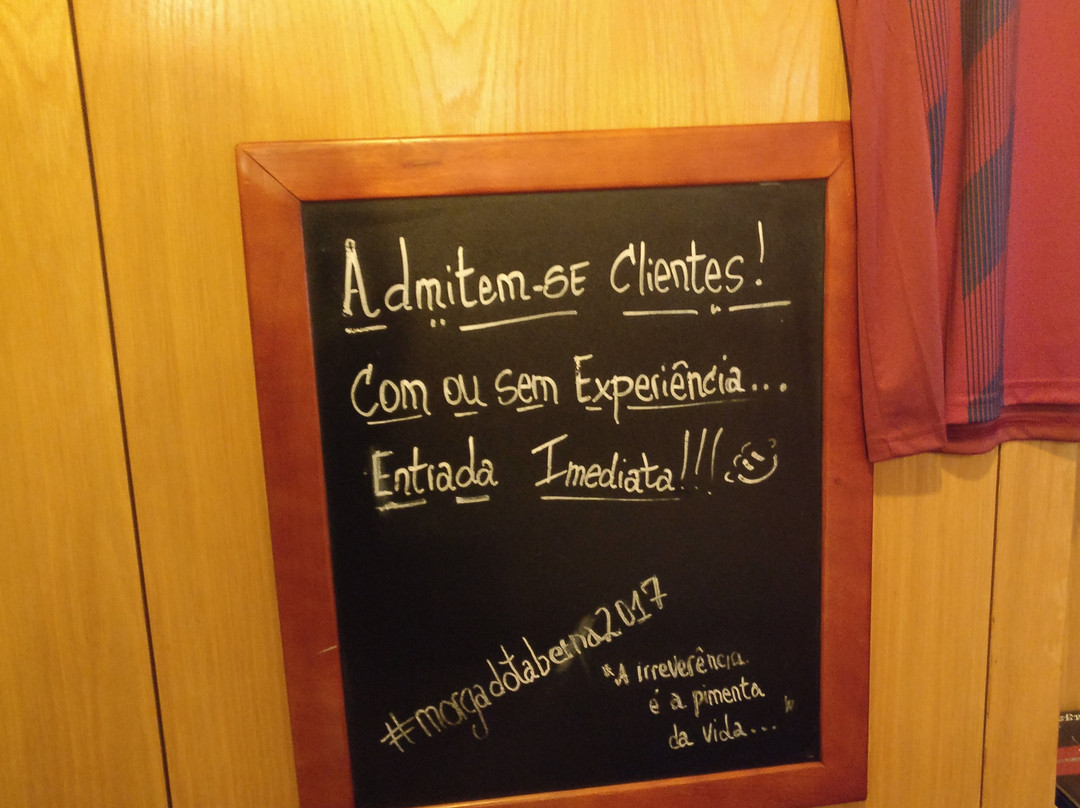 Admitem-se Clientes!
Com ou sem Experiência...
Entrada Imediata!!!
#morgadotaberna2017
"A irreverência
é a pimenta
da vida..."